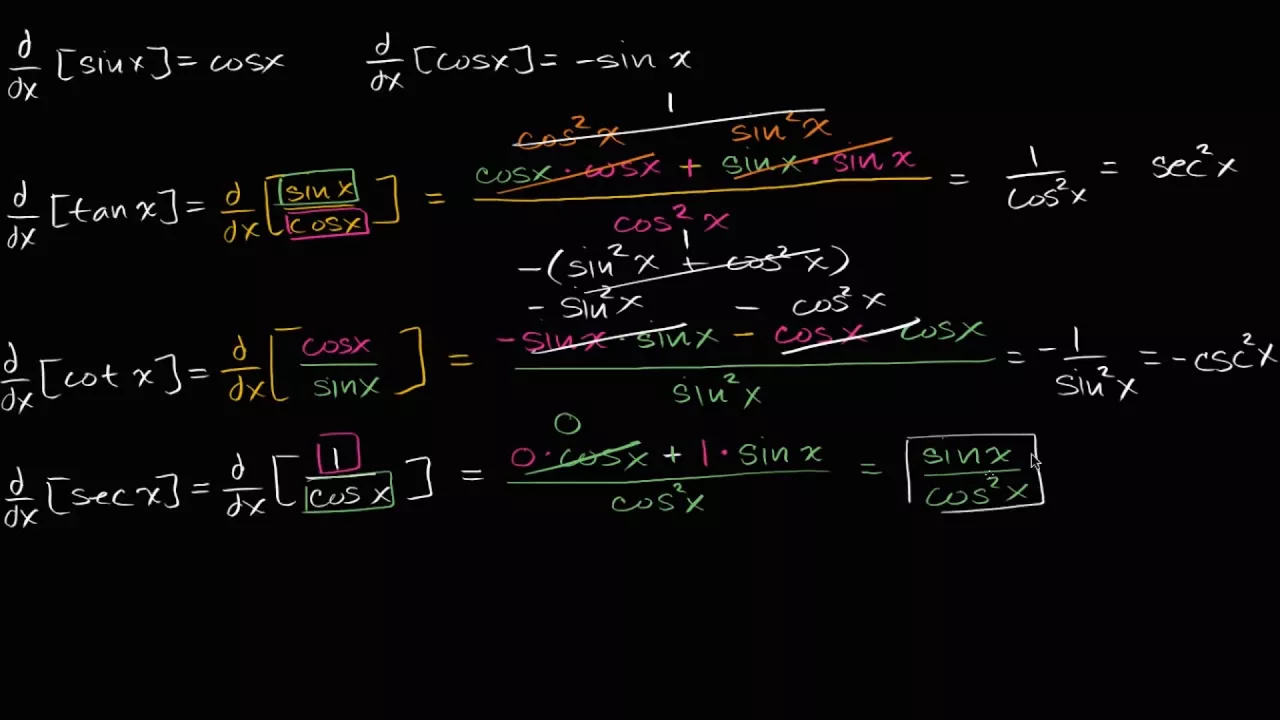 d/dx [sin x] = cos x    d/dx [cos x] = -sin x
1
cos²x    sin²x
d/dx [tan x] = d/dx [sin x / cos x] = (cos x · cos x + sin x · sin x) / cos²x = 1/cos²x = sec²x
1
-(sin²x + cos²x)
- sin²x - cos²x
d/dx [cot x] = d/dx [cos x / sin x] = (-sin x · sin x - cos x cos x) / sin²x = -1/sin²x = -csc²x
0
d/dx [sec x] = d/dx [1 / cos x] = (0 · cos x + 1 · sin x) / cos²x = sin x / cos²x